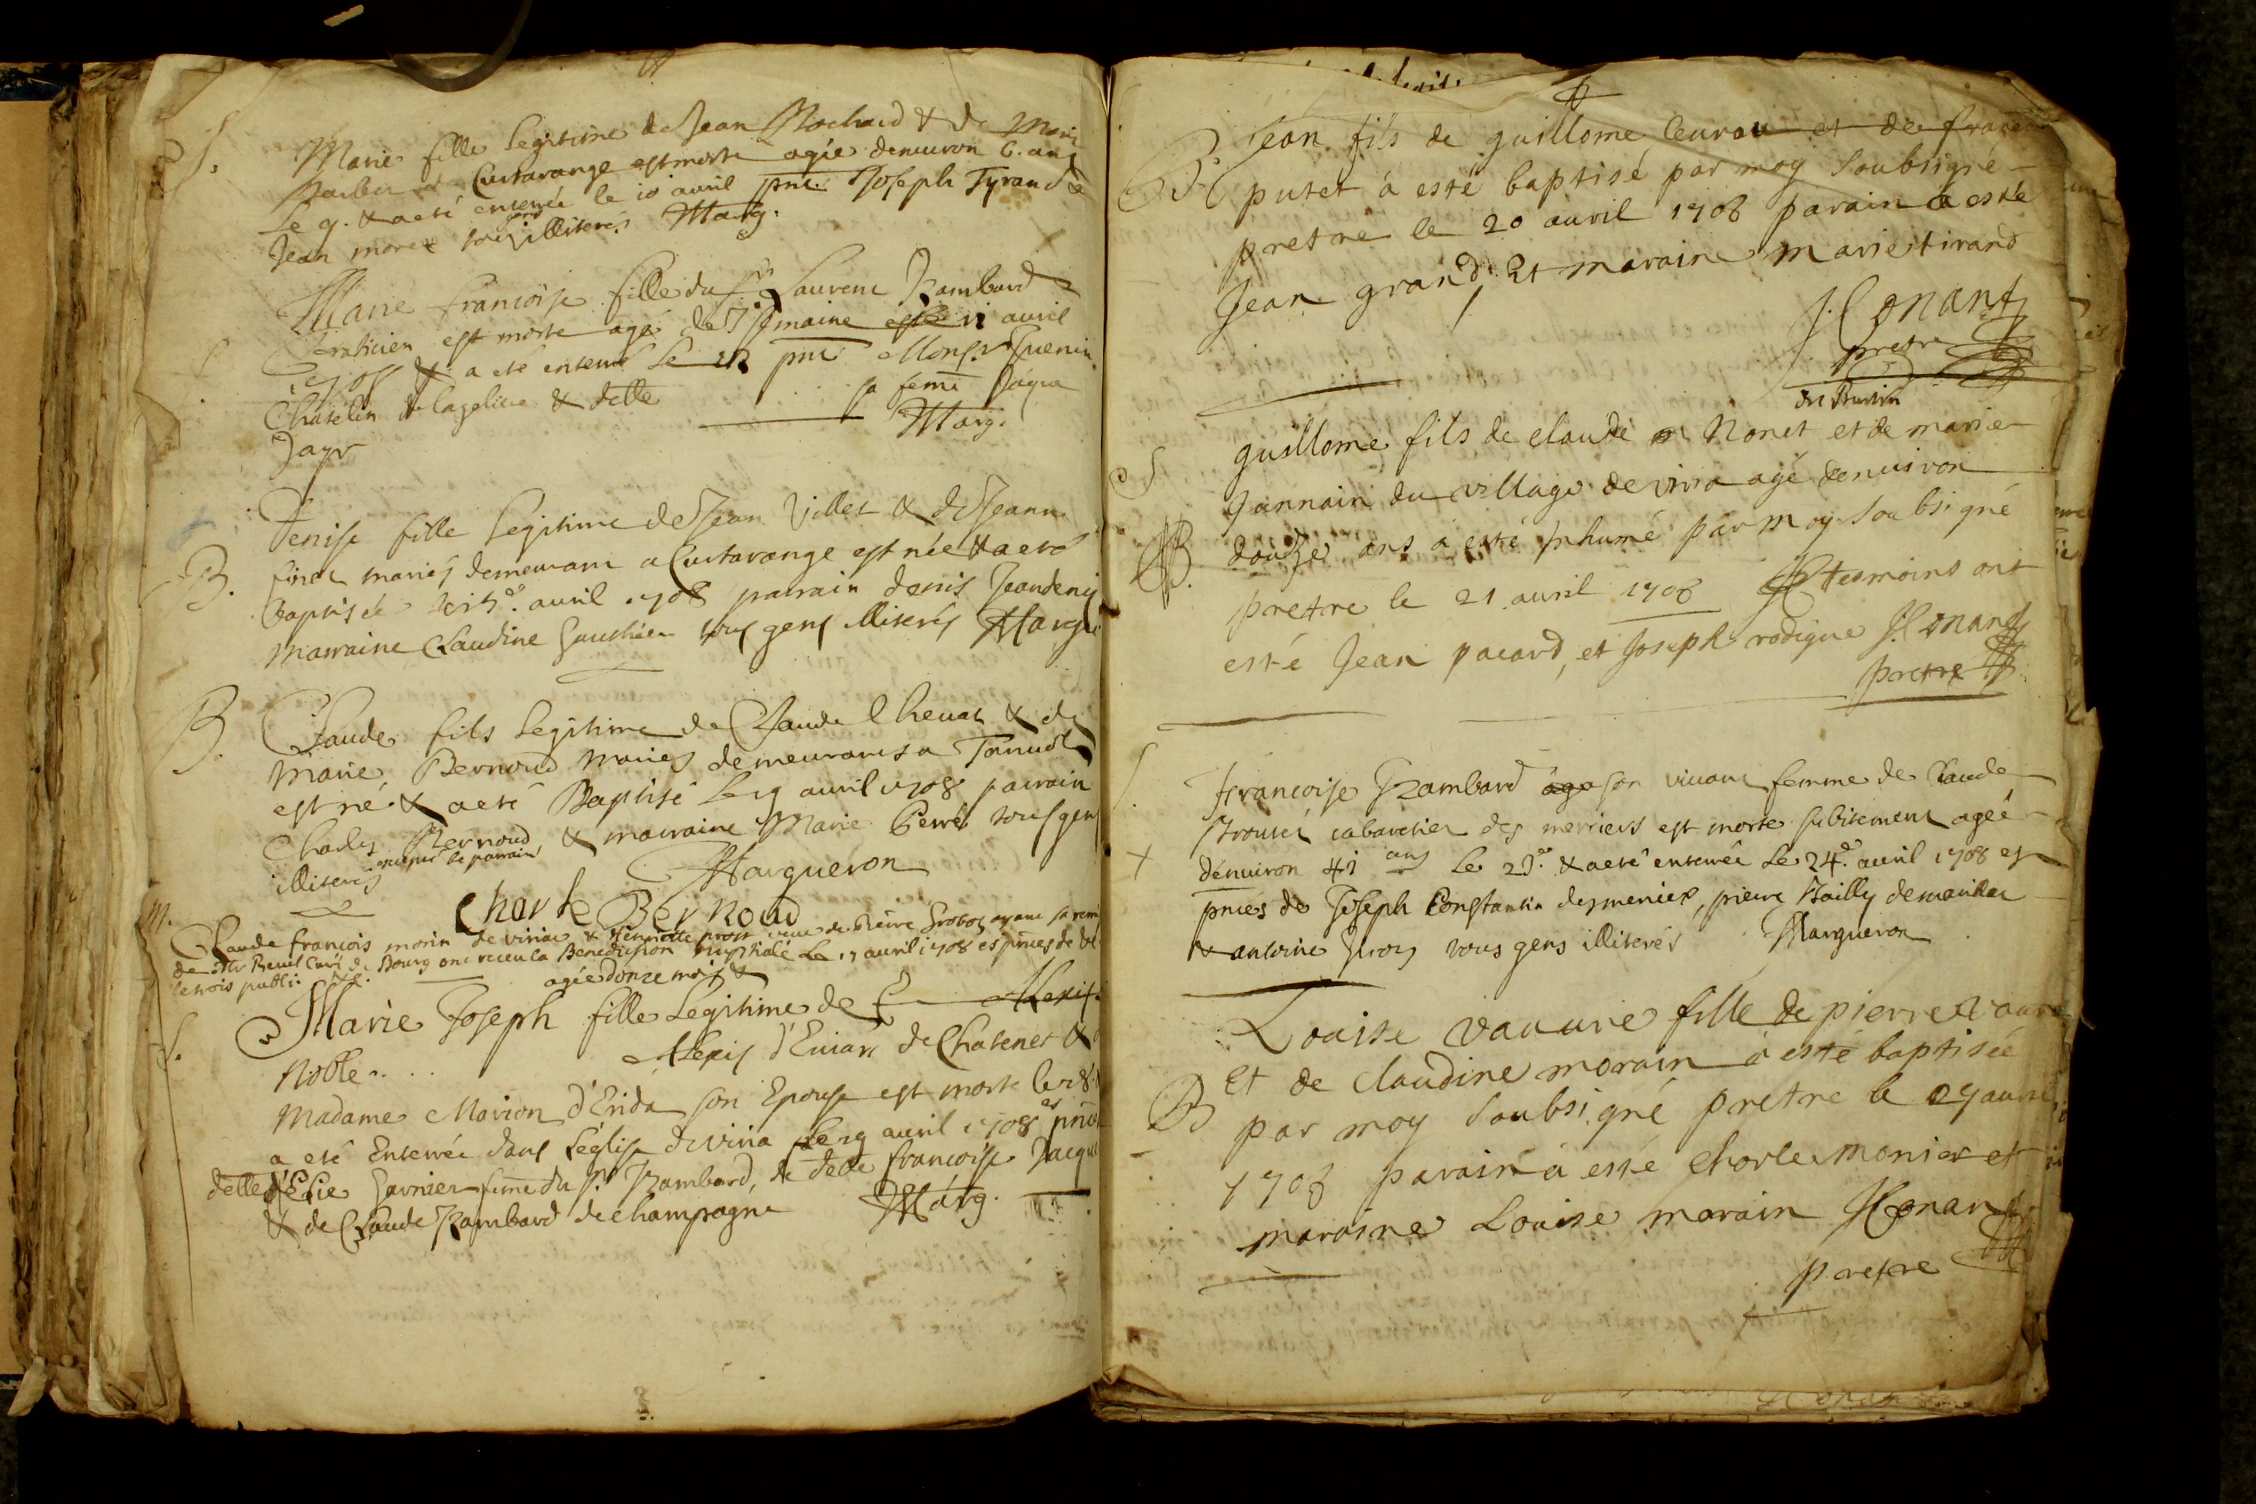 S. Marie fille Legitime de Jean Mochard & de Marie
Barbier a Curtarange est morte agée denuiron 6. ans
le 9. & a eté enterrée le 10 avril pnt. Joseph Tyrand &
Jean morex tous gens illiterés Marg.
Marie francoise fille du sr. Laurent Rambard
praticien est morte agé de 7 semaine le 11 avril
1708 & a eté enterré le 12 pnt Monsr. Guenin
Chatelin & delle sa feme
Jayr Marg.
B. Denise fille Legitime de Jean Villet & de Jeanne
finet mariés demeurant a Curtarange est née & a eté
baptisée avril 1708 parrain denis Jeandenis
marraine Claudine Gauthier tous gens illiterés Margu
B. Claude fils Legitime de Claude Chevat & de
Marie Bernoud mariés demeurants a Tanuol
est né & a eté Baptisé le 19 avril 1708 parrain
Charles Bernoud & marraine Marie Perret tous gens
illiterés excepté le parrain Margueron
Charle Bernoud
M. Claude francois morin de viriac & Henriette prost veuve de Pierre Groboz ayant sa remi
de Mr Revel Curé de Bourg ont receu la Benediction nuptiale Le 17 avril 1708 es pnces de
agée donze mois &
S. Marie Joseph fille Legitime de Alexis
Noble.... Alexis d'Euiars de Chatenet &
Madame Marion d'Erida son Epouse est morte le 18.
a eté Enterrée dans l'église de viria Le 19 avril 1708 es pnce
delle Garnier feme du sr. Rambard, de delle francoise Jacque
& de Claude Rambard de champagne Marg.
B. Jean fils de guillome leurau et de france
putet á esté baptisé par moy soubsigné
pretre le 20 auril 1708 parain á esté
Jean grand, Et maraine marie tirand
J. Conant
pretre
S guillome fils de claude Nonet et de marie
Jannain du village de viria agé denuiron
douze ans á esté inhumé par moy soubsigné
pretre le 21 auril 1708 tesmoins ont
esté Jean pacard, et Joseph rodigue J. Conant
pretre
S. francoise Rambard son viuant femme de Claude
cabaretier des meniers est morte subitement agée
denuiron 41 ans Le 23e. & a eté enterrée Le 24e. auril 1708 es
pnces de Joseph Constantin desmenier, pierre Bailly
& antoine tous gens illiterés Margueron
Louise vauurie fille de pierre vaure
B Et de claudine morain á esté baptisée
par moy soubsigné pretre le 29 auril
1708 parain á esté charle monier et
maraine Louise morain J. Conant
pretre